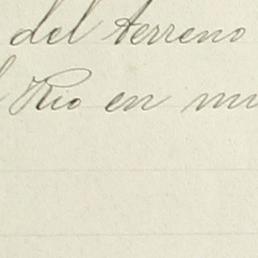 del terreno
Rio en